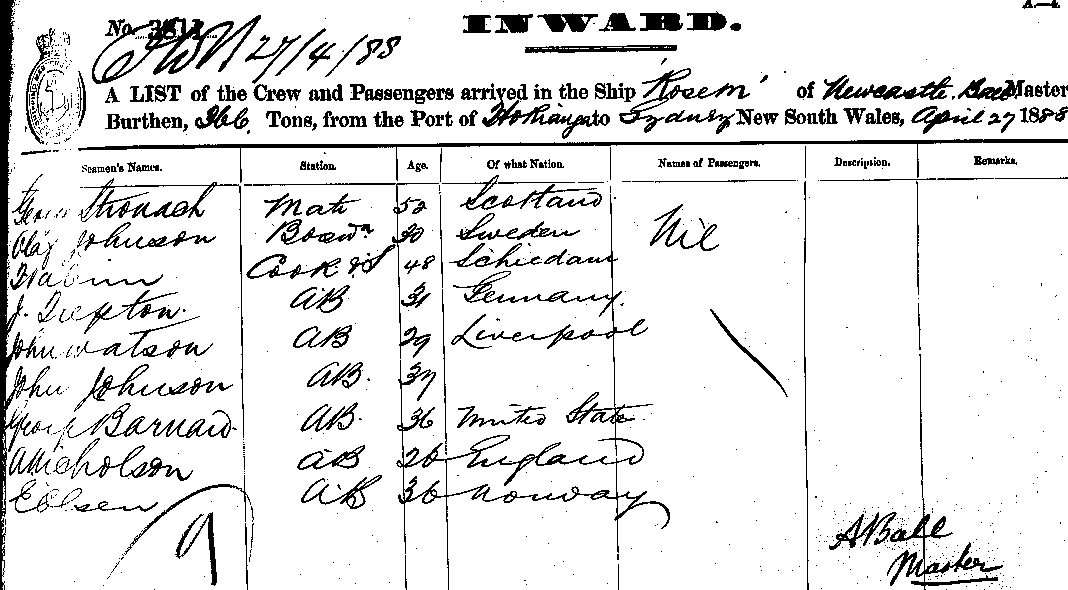 A—4
No. 3811 INWARD.
27/4/88
A LIST of the Crew and Passengers arrived in the Ship 'Rosem' of Newcastle. Ball Master
Burthen, 366. Tons, from the Port of Hokianga to Sydney New South Wales, April 27 1888
Seamen's Names. Station. Age. Of what Nation. Names of Passengers. Description. Remarks.
Stronach Mate 52 Scotland
Olaf Johnson Boswn 30 Sweden Nil
Cook & S 48 Schiedam
J. AB 31 Germany.
John Watson AB 29 Liverpool
John Johnson AB. 37
George Barnard AB. 36 United State
A Nicholson AB 26 England
E Olsen AB 36 Norway
9
A Ball
Master